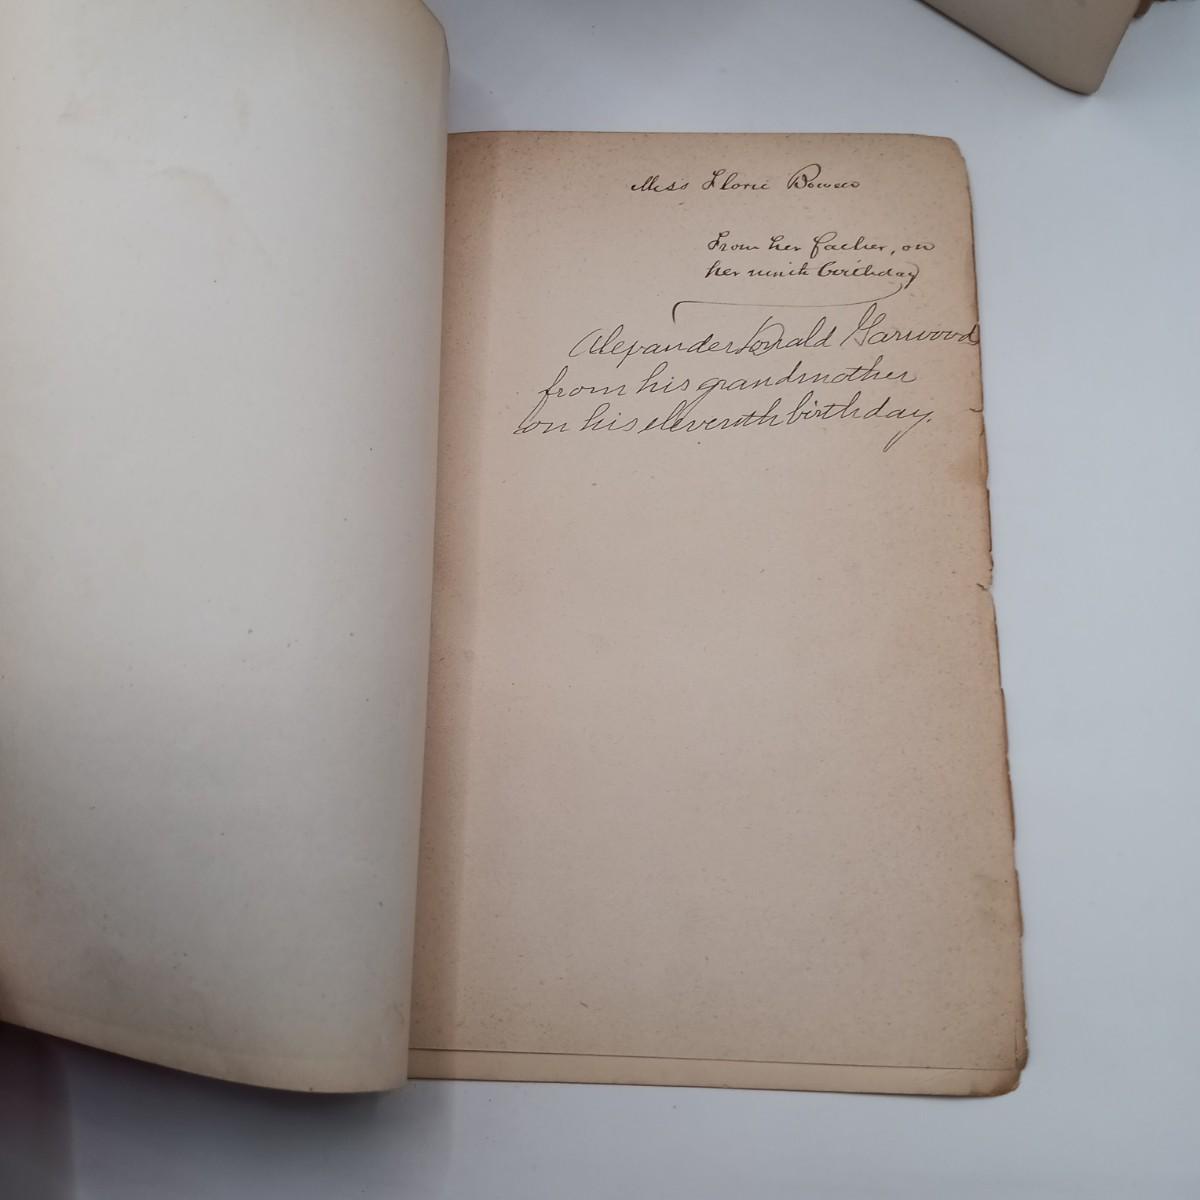 Miss Florie Bowen
From her father, on
her ninth birthday
Alexander Donald Garwood
from his grandmother
on his eleventh birthday.